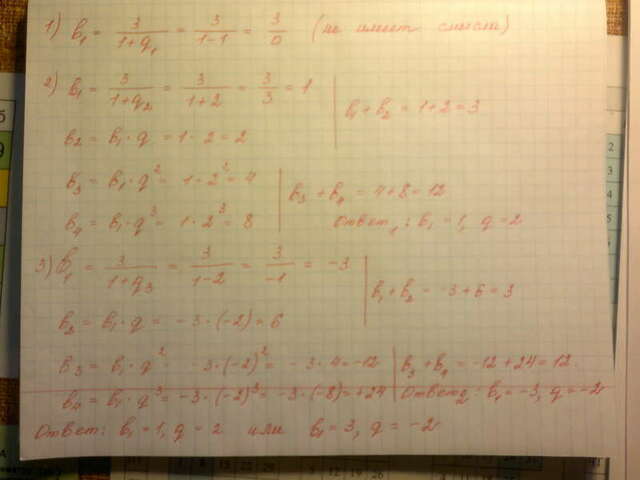 1) b₁ = 3/(1+q₁) = 3/(1-1) = 3/0 (не имеет смысла)
2) b₁ = 3/(1+q₂) = 3/(1+2) = 3/3 = 1
b₁ + b₂ = 1+2 = 3
b₂ = b₁·q = 1·2 = 2
b₃ = b₁·q² = 1·2² = 4
b₃ + b₄ = 4+8 = 12
b₄ = b₁·q³ = 1·2³ = 8
Ответ₁: b₁ = 1, q = 2
3) b₁ = 3/(1+q₃) = 3/(1-2) = 3/-1 = -3
b₁ + b₂ = -3+6 = 3
b₂ = b₁·q = -3·(-2) = 6
b₃ = b₁·q² = -3·(-2)² = -3·4 = -12
b₃ + b₄ = -12+24 = 12.
b₄ = b₁·q³ = -3·(-2)³ = -3·(-8) = +24
Ответ₂: b₁ = -3, q = -2
Ответ: b₁ = 1, q = 2 или b₁ = 3, q = -2